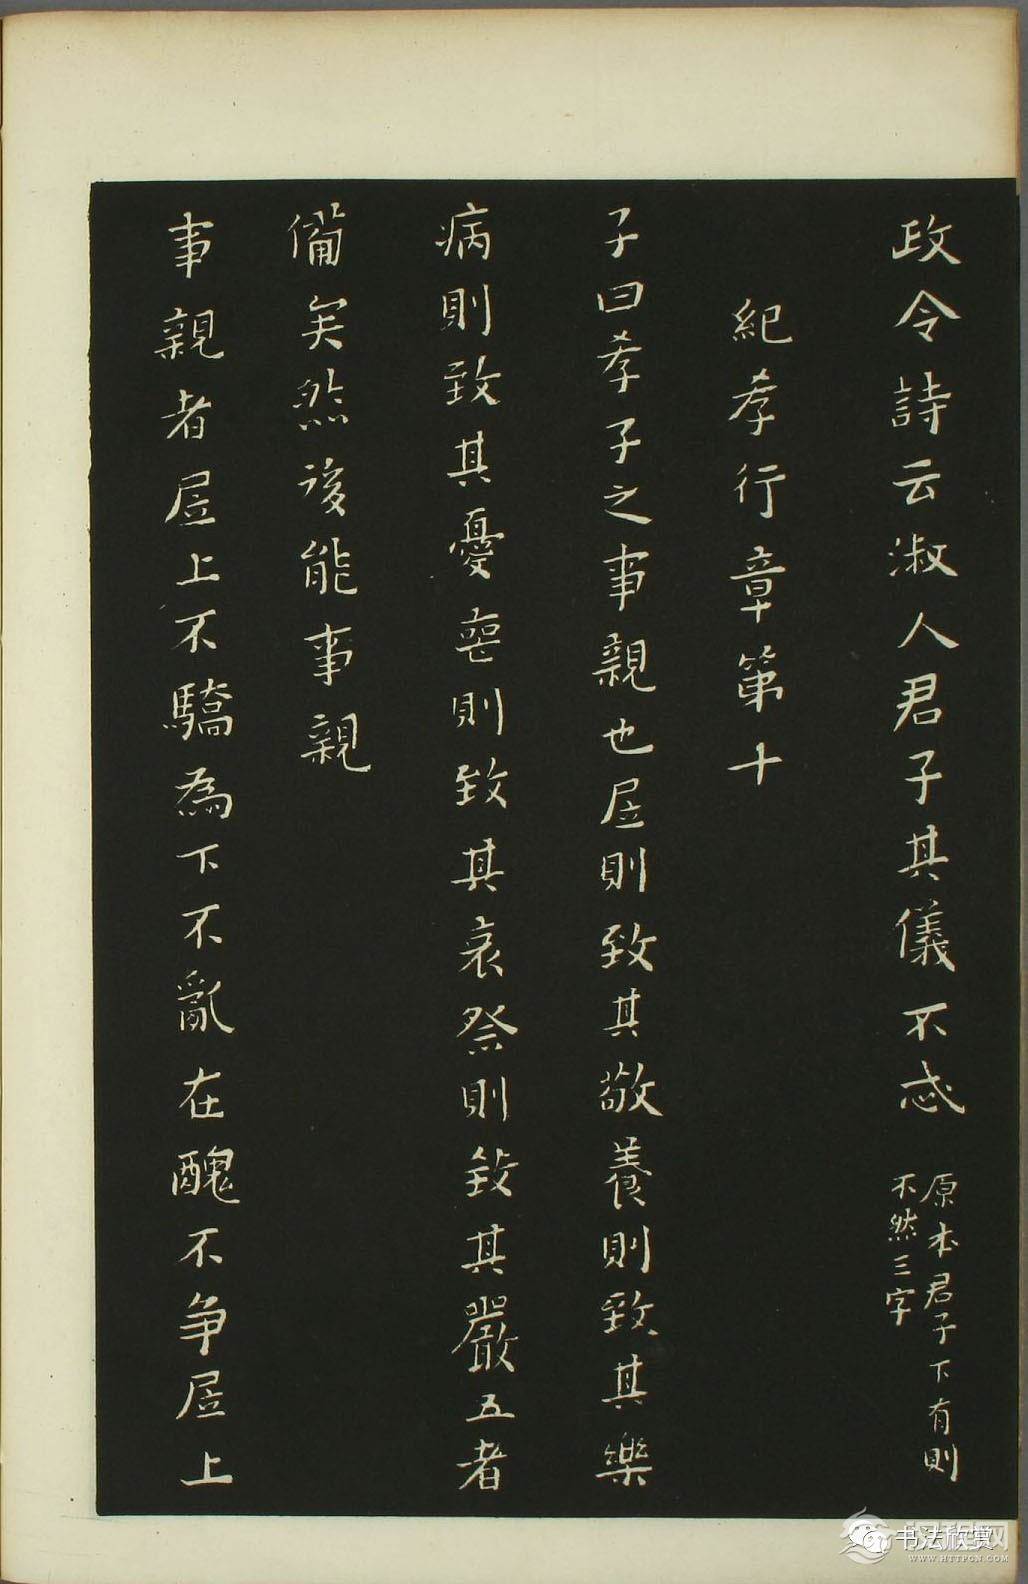 政令詩云淑人君子其儀不忒
原本君子下有則
不然三字
紀孝行章第十
子曰孝子之事親也居則致其敬養則致其樂
病則致其憂喪則致其哀祭則致其嚴五者
備矣然後能事親
事親者居上不驕為下不亂在醜不争居上
书法欣赏
WWW.HTTPCN.COM